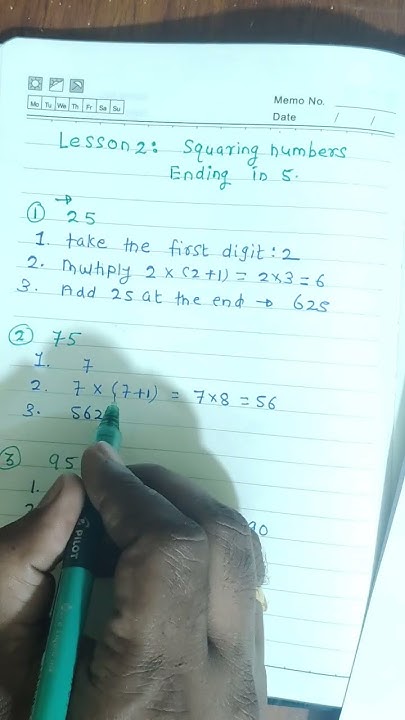 Memo No.
Mo Tu We Th Fr Sa Su
Date / /
Lesson 2: Squaring numbers
Ending in 5.
① 25
1. take the first digit: 2
2. Multiply 2 × (2+1) = 2×3 = 6
3. Add 25 at the end → 625
② 75
1. 7
2. 7 × (7+1) = 7×8 = 56
3. 562
③ 95
1.
90
PILOT